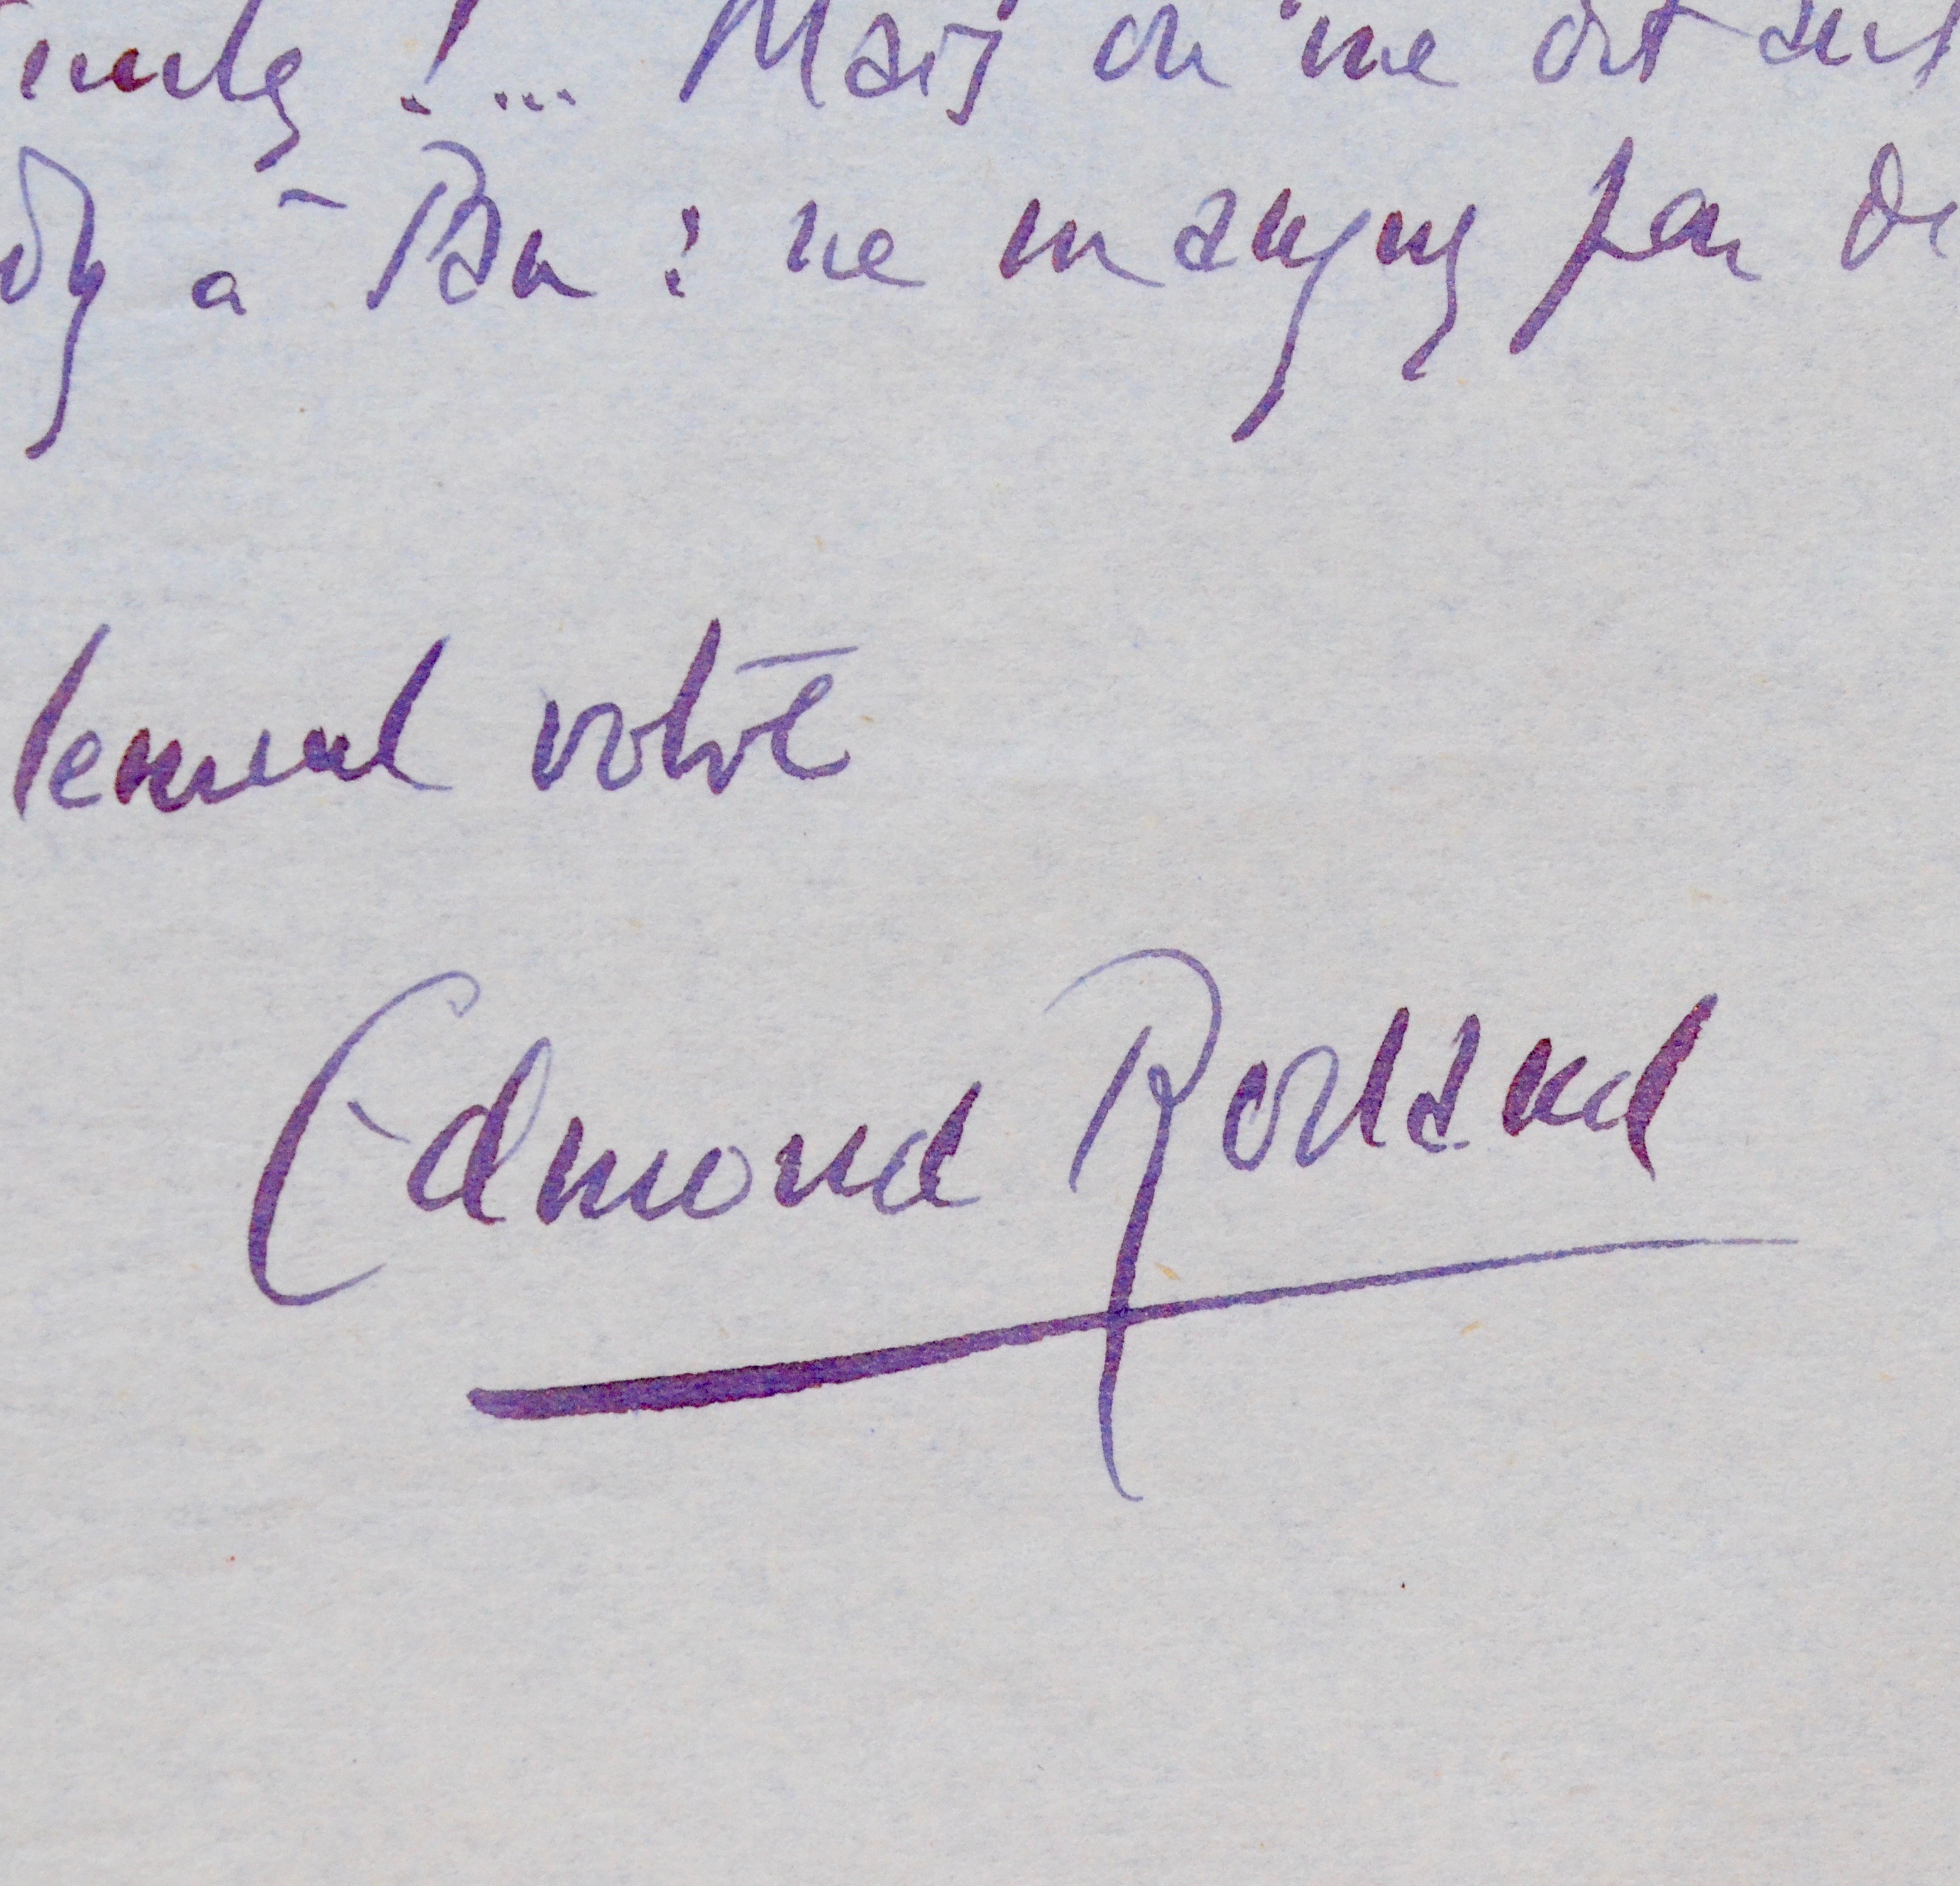 ! ... Mais on me dit
à Pau : ne manquez pas de
lement votre
Edmond Rostand